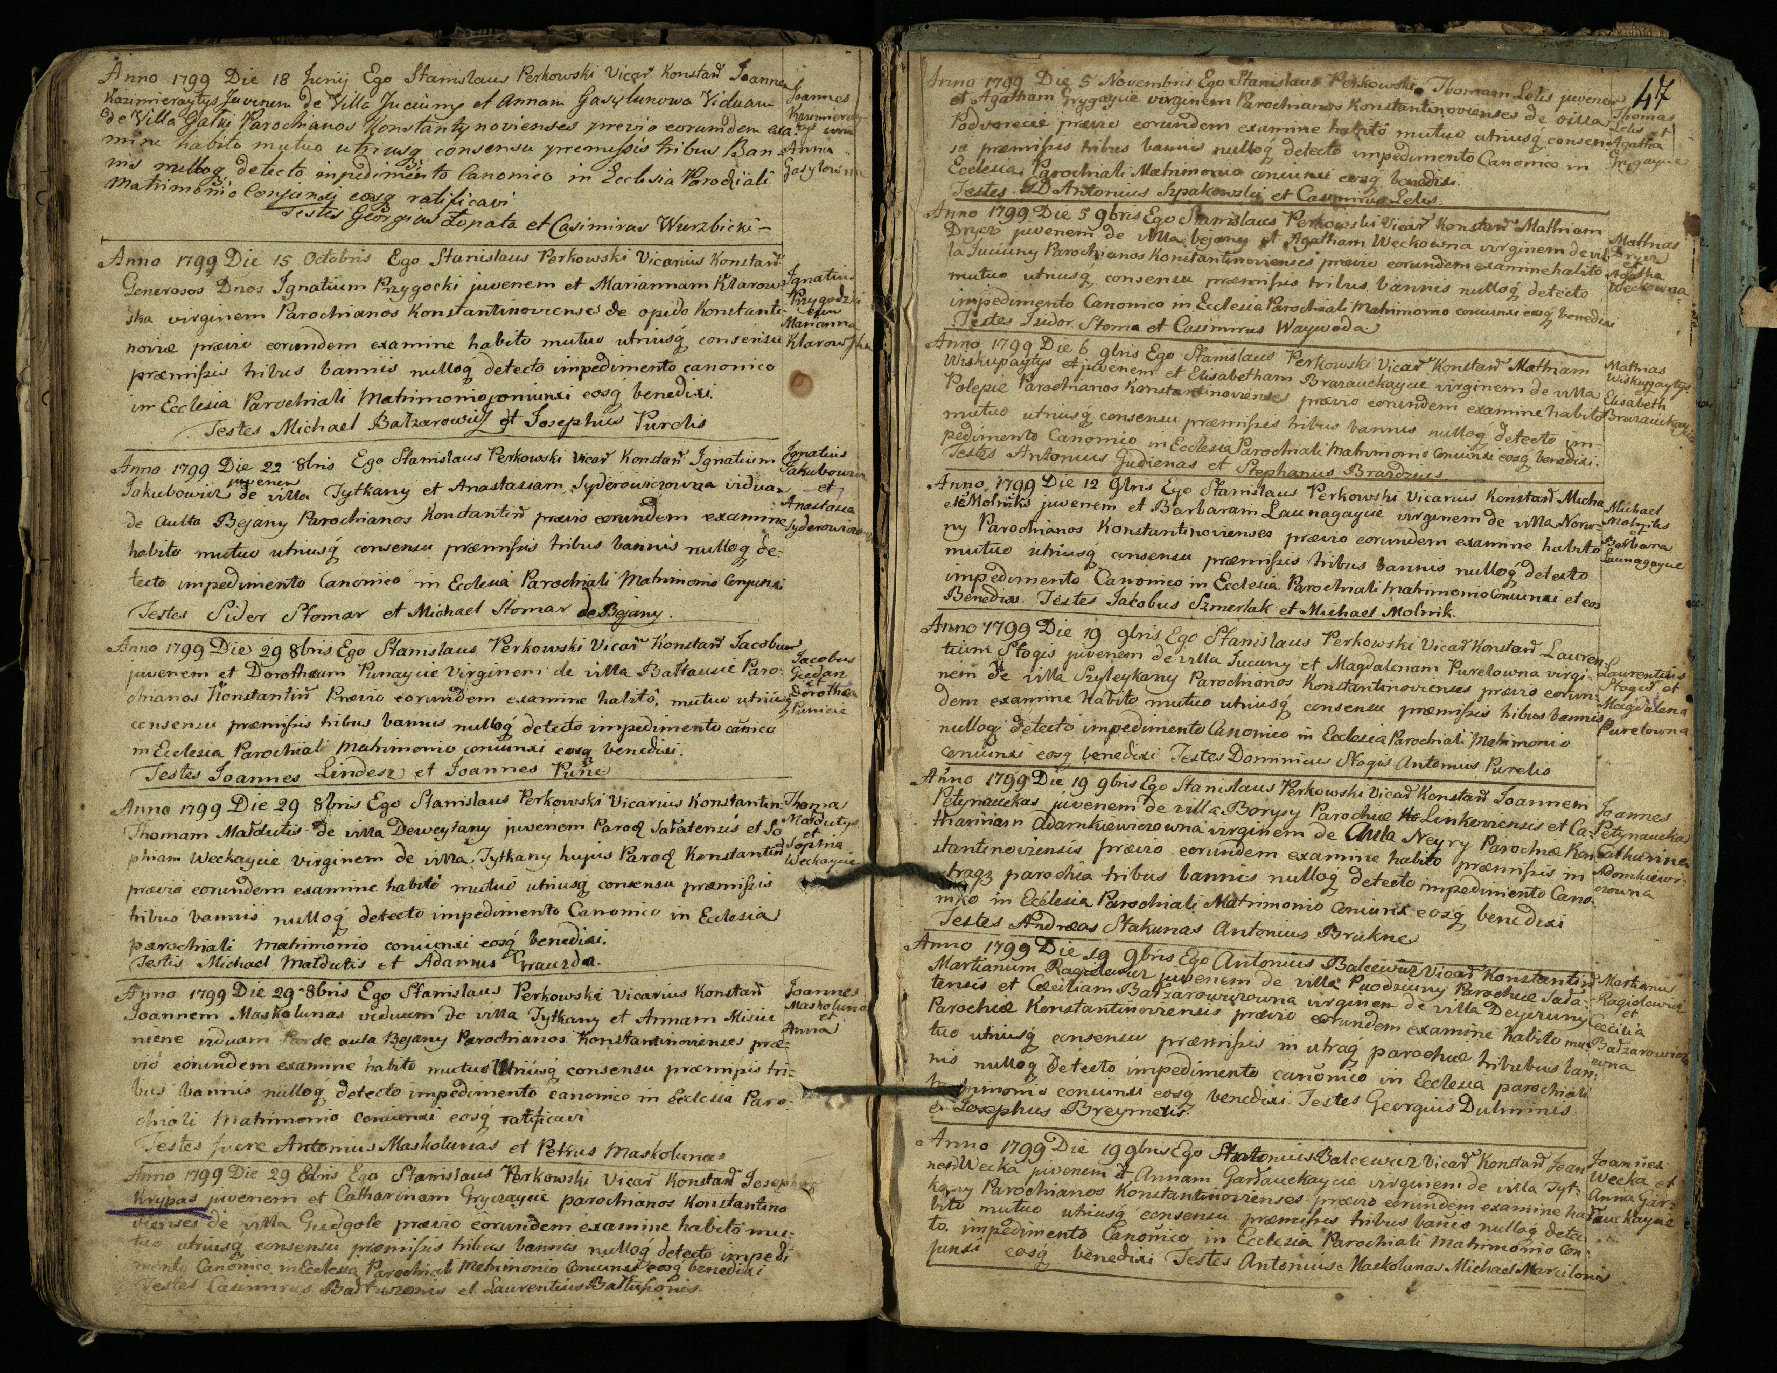 Anno 1799 Die 18 Junij Ego Stanislaus Perkowski Vicar Konstan Joannem
Kazimieraytys Juvenem de Villa Juciuny et Annam Gasylunowa Viduam
de Villa Gatus Parochianos Konstantynovienses previo eorumdem exa-
mine habito mutuo utriusq consensu premissis tribus Ban-
nis nulloq detecto impedimento Canonico in Ecclesia Parochiali
Matrimonio Conjunxi eosq ratificavi
Testes Georgius Łopata et Casimiras Wurzbicki
Joannes
Anna
Anno 1799 Die 15 Octobris Ego Stanislaus Perkowski Vicarius Konstan
Generosos Dnos Ignatium Przygocki juvenem et Mariannam Klarow-
ska virginem Parochianos Konstantinovienses de opido Konstanti-
noviæ prævio eorundem examine habito mutuo utriusq consensu
præmissis tribus bannis nulloq detecto impedimento canonico
in Ecclesia Parochiali Matrimonio coniunxi eosq benedixi.
Testes Michael Bałzarowicz et Josephus Purelis
Ignatius
Przygodzki
cum
Marianna
Klarowska
Anno 1799 Die 22 8bris Ego Stanislaus Perkowski Vicar Konstan Ignatium
Jakubowicz juvenem de villa Tytkany et Anastasiam Syderowiczowna viduam
de Aulta Bejany Parochianos Konstantin prævio eorundem examine
habito mutuo utriusq consensu præmissis tribus bannis nulloq de-
tecto impedimento Canonico in Ecclesia Parochiali Matrimonio Conjunxi
Testes Sidor Stomar et Michael Stomar de Bejany.
Ignatius
Jakubowicz
et
Anastasia
Anno 1799 Die 29 8bris Ego Stanislaus Perkowski Vicar Konstan Jacobum
juvenem et Dorotheam Punaycie Virginem de villa Bałtausie Paro-
chianos Konstantin Prævio eorundem examine habito, mutuo utriusq
consensu præmissis tribus bannis nulloq detecto impedimento canico
in Ecclesia Parochiali Matrimonio coniunxi eosq benedixi.
Testes Joannes Lindesz et Joannes Pune
Jacobus
Giedan
et
Dorothea
Punicie
Anno 1799 Die 29 8bris Ego Stanislaus Perkowski Vicarius Konstantin
Thomam Małdutis de villa Deweytany juvenem Paroq Sałatensis et So
phiam Weckaycie virginem de villa Tytkany hujus Paroq Konstantin
prævio eorundem examine habito mutuo utriusq consensu præmissis
tribus bannis nulloq detecto impedimento Canonico in Ecclesia
parochiali Matrimonio coniunxi eosq benedixi.
Testis Michael Małdutis et Adamus Grauzda.
Thoma
Małdutys
et
Sophia
Weckaycie
Anno 1799 Die 29 8bris Ego Stanislaus Perkowski Vicarius Konstan
Joannem Maskolunas viduum de villa Tytkany et Annam Misiu
niene viduam de aula Bejany Parochianos Konstantinovienses præ-
vio eorundem examine habito mutuo Utriusq consensu præmissis tri-
bus bannis nulloq detecto impedimento canonico in Ecclesia Paro-
chiali Matrimonio coniunxi eosq ratificavi
Testes fuere Antonius Maskolunas et Petrus Maskolunas
Joannes
Maskolunas
et
Anna
Anno 1799 Die 29 8bris Ego Stanislaus Perkowski Vicar Konstan Josephum
Krypas juvenem et Catharinam Gryczaycie parochianos Konstantino
vienses de villa Gudgole prævio eorundem examine habito mu-
tuo utriusq consensu præmissis tribus bannis nulloq detecto impedi
mento Canonico in Ecclesia Parochiali Matrimonio Coniunxi eosq benedixi
Testes Casimirus Bałtuszonis et Laurentius Bałtuszonis.
47
Anno 1799 Die 5 Novembris Ego Stanislaus Perkowski Thomam Lelis juvenem
et Agatham Grygaycie virginem Parochianos Konstantinovienses de villa
Podworecie prævio eorundem examine habito mutuo utriusq consen-
su præmissis tribus bannis nulloq detecto impedimento Canonico in
Ecclesia Parochiali Matrimonio coniunxi eosq benedixi.
Testes Antonius Szpakowski et Casimirus Lelis
Thomas
Lelis et
Agatha
Grygaycie
Anno 1799 Die 5 9bris Ego Stanislaus Perkowski Vicar Konstan Mathiam
Dryer juvenem de villa bejany et Agatham Weckowna virginem de vil
la Juciuny Parochianos Konstantinovienses prævio eorundem examine habito
mutuo utriusq consensu præmissis tribus bannis nulloq detecto
impedimento Canonico in Ecclesia Parochiali Matrimonio coniunxi eosq benedixi
Testes Isidor Stoma et Casimirus Waywoda
Mathias
Dryer
et
Agatha
Weckowna
Anno 1799 Die 6 9bris Ego Stanislaus Perkowski Vicar Konstan Mathiam
Wiskupaytys juvenem et Elisabetham Brazauckaycie virginem de villa
Polepie Parochianos Konstantinovienses prævio eorundem examine habito
mutuo utriusq consensu præmissis tribus bannis nulloq detecto im-
pedimento Canonico in Ecclesia Parochiali Matrimonio Coniunxi eosq benedixi.
Testes Antonius Gudienas et Stephanus Brandzius
Mathias
Wiskupaytys
Elisabeth
Brazauckaycie
Anno 1799 Die 12 9bris Ego Stanislaus Perkowski Vicarius Konstan Micha
elem Molniks juvenem et Barbaram Launagaycie virginem de villa Norw-
ny Parochianos Konstantinovienses prævio eorundem examine habito
mutuo utriusq consensu præmissis tribus bannis nulloq detecto
impedimento Canonico in Ecclesia Parochiali Matrimonio Coniunxi et eos
Benedixi. Testes Jakobus Szmerlak et Michael Molnik.
Michael
Molniks
et
Barbara
Launagaycie
Anno 1799 Die 19 9bris Ego Stanislaus Perkowski Vicar Konstan Lauren-
tium Stogis juvenem de villa Juciuny et Magdalenam Purelowna virgi-
nem de villa Szyleykany Parochianos Konstantinovienses prævio eorun-
dem examine habito mutuo utriusq consensu præmissis tribus bannis
nulloq detecto impedimento Canonico in Ecclesia Parochiali Matrimonio
coniunxi eosq benedixi Testes Dominicus Stogis Antonius Purelis
Laurentius
Stogis et
Magdalena
Purelowna
Anno 1799 Die 19 9bris Ego Stanislaus Perkowski Vicar Konstan Joannem
Petynauckas juvenem de villa Borysy Parochiæ Linkoviensis et Ca-
tharinam Adamkiewiczowna virginem de Aula Neyry Parochiæ Kon
stantinoviensis prævio eorundem examine habito præmissis in
utraqz parochia tribus bannis nulloq detecto impedimento Cano-
nico in Ecclesia Parochiali Matrimonio Coniunxi eosq benedixi
Testes Andreas Stakunas Antonius Brukne
Joannes
Petynauckas
Catharina
Anno 1799 Die 19 9bris Ego Antonius Balcewicz Vicar Konstantin
Martianum Ragielewicz juvenem de villa Puodziuny Parochiæ Sała-
tensis et Cæciliam Bałzarowiczowna virginem de villa Deyczuny
Parochiæ Konstantinoviensis prævio eorundem examine habito mu-
tuo utriusq consensu præmissis in utraq parochia tribubus ban-
nis nulloq detecto impedimento canonico in Ecclesia parochiali
Matrimonio coniunxi eosq benedixi Testes Georgius Dulminis
et Josephus Breymelis
Martianus
Ragielewicz
et
Cæcilia
Bałzarowicz
owna
Anno 1799 Die 19 9bris Ego Antonius Balcewicz Vicar Konstan Joan
nem Wecka juvenem et Annam Gardauckaycie virginem de villa Tyt-
kany Parochianos Konstantinovienses prævio eorundem examine ha-
bito mutuo utriusq consensu præmissis tribus banis nulloq detec-
to impedimento Canonico in Ecclesia Parochiali Matrimonio Con-
junxi eosq benedixi Testes Antonius Maskolunas Michael Marcilonis
Joannes
Wecka et
Anna Gar-
dauckaycie